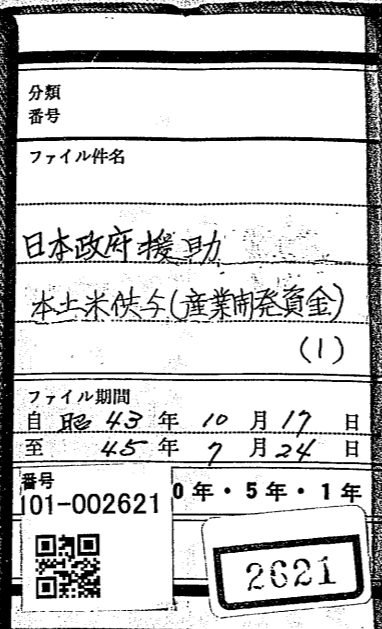 分類
番号
ファイル件名
日本政府援助
本土米供与(産業開発資金)
(1)
ファイル期間
自 昭 43 年 10 月 17 日
至 45 年 7 月 24 日
番号
I01-002621
0年・5年・1年
2621